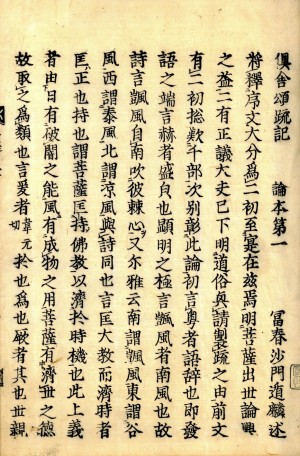 俱舍頌疏記　論本第一　冨春沙門道麟述
將釋序文大分為二初至寔在兹焉明菩薩出世論興
之益二有正議大夫已下明道俗與請製䟽之由前文
有二初揔歎千部次别彰此論初言粤者語辞也即發
語之端言赫者盛良也顯明之極言颽風者南風也故
詩言颽風自南吹彼棘心又尔雅云南謂颽風東謂谷
風西謂泰風北謂涼風與詩同也言匡大教而濟時者
匡正也持也謂菩薩匡持佛教以濟於時機也此上義
者由日有破闇之能風有成物之用菩薩有濟丗之德
故取之為類也言爰者韋元切於也為也厥者其也丗親